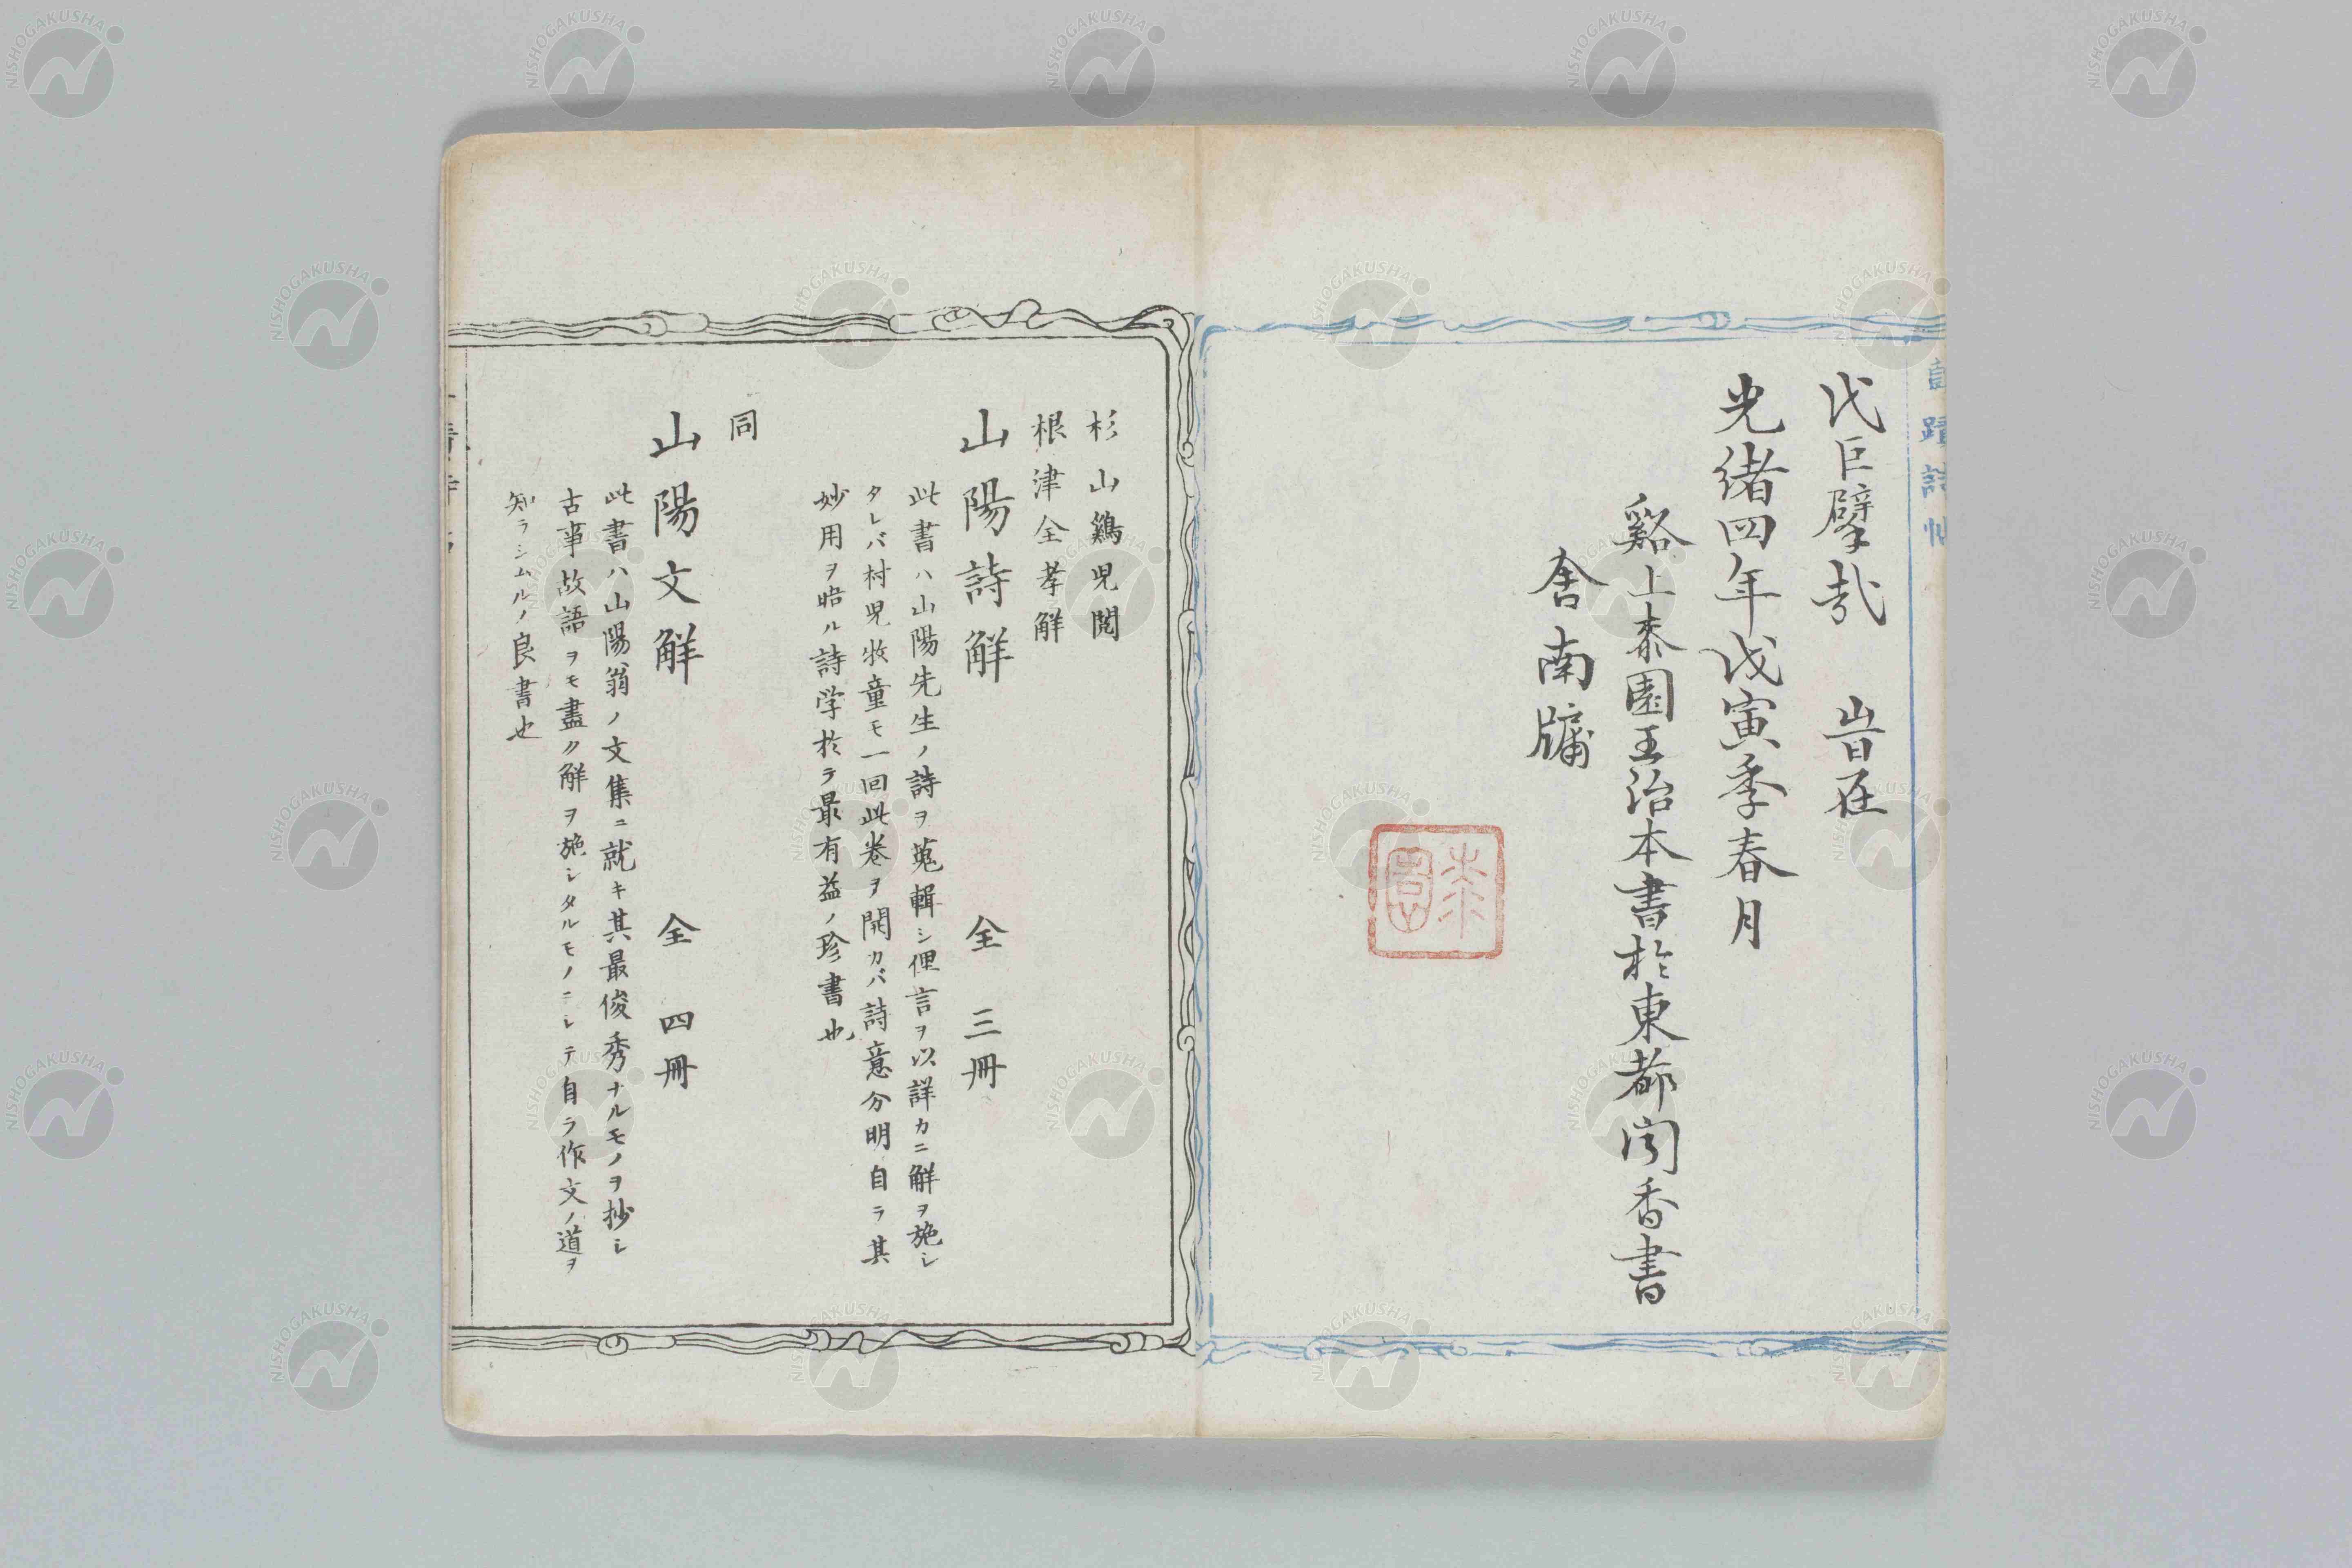 代巨擘哉　旹在
光緒四年戊寅季春月
谿上桼園王治本書於東都聞香書
舍南牖
桼園
杉山鷄児閲
根津全孝解
山陽詩解　全三冊
此書ハ山陽先生ノ詩ヲ蒐輯シ俚言ヲ以詳カニ解ヲ施シ
タレバ村児牧童モ一回此巻ヲ開カバ詩意分明自ラ其
妙用ヲ晤ル詩学於ラ最有益ノ珍書也
同
山陽文解　全四冊
此書ハ山陽翁ノ文集ニ就キ其最俊秀ナルモノヲ抄シ
古事故語ヲモ盡ク解ヲ施シタルモノニシテ自ラ作文ノ道ヲ
知ラシムルノ良書也
NISHOGAKUSHA